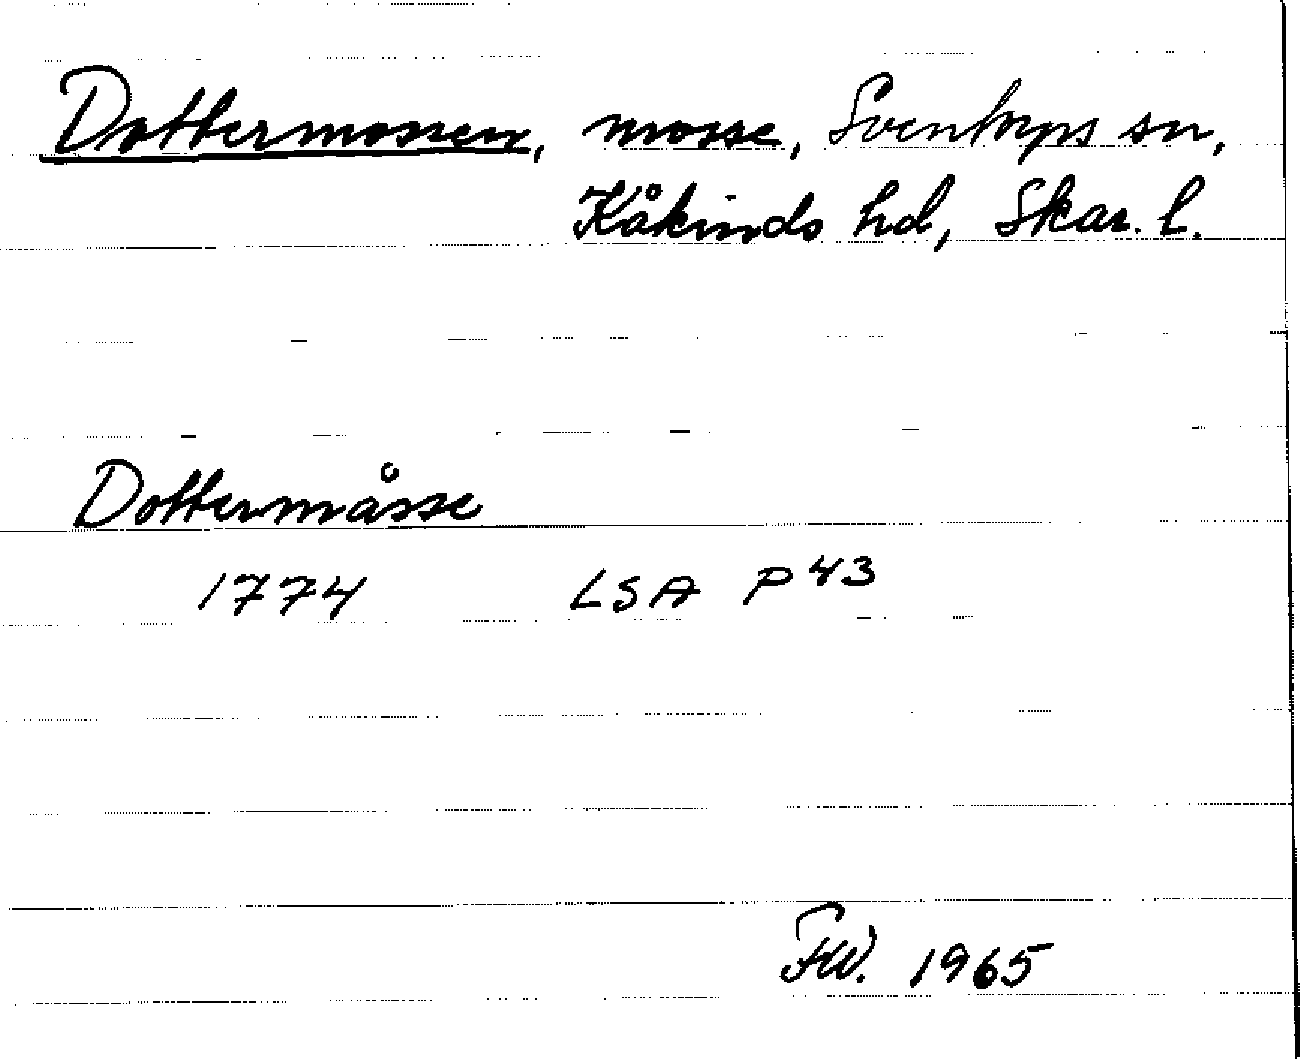 Dottermossen, mosse, Sventorps sn,
Kåkinds hd, Skar. l.
Dottermåsse
1774 LSA P43
FW. 1965